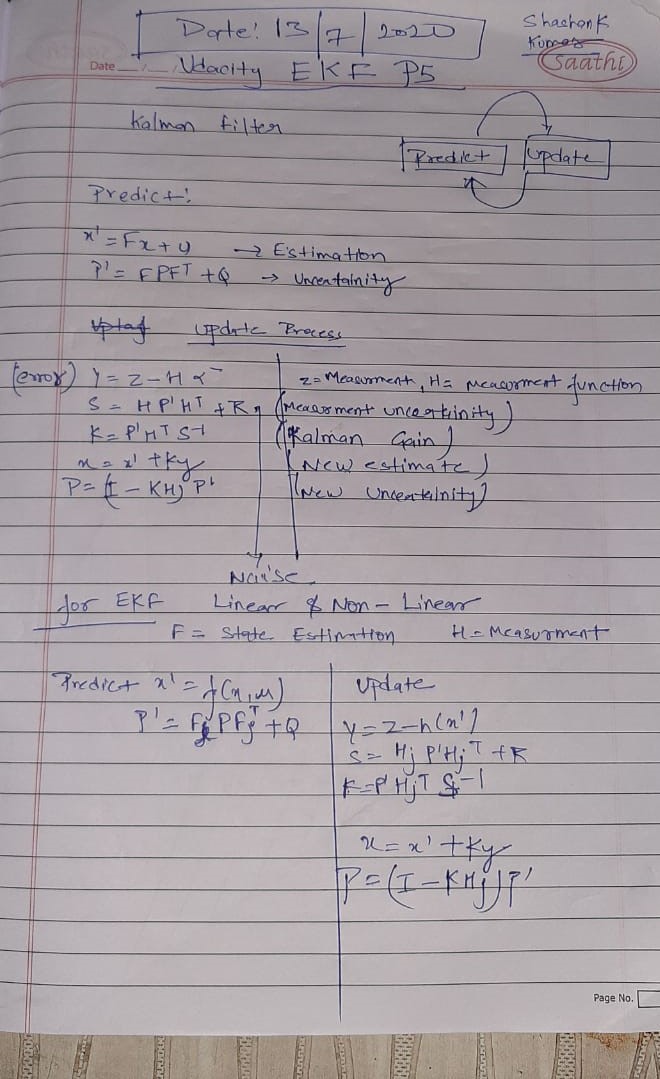 Date: 13/7/2020
Shashank
Kumar
Saathi
Date
Udacity EKF P5
Kalman Filter
Predict
Update
Predict:
x' = Fx + u → Estimation
P' = FPFᵀ + Q → Uncertainity
Update Process
(error) Y = Z - H x⁻
Z = Measurment, H = Measurment function
S = H P'Hᵀ + R
(Measurment uncertainity)
K = P'Hᵀ S⁻¹
(Kalman Gain)
x = x' + Ky
(New estimate)
P = (I - KH) P'
(New Uncertainity)
Noise
for EKF Linear & Non-Linear
F = State Estimation H = Measurment
Predict x' = f(x, u)
P' = Fj P Fjᵀ + Q
Update
y = z - h(x')
S = Hj P'Hjᵀ + R
K = P' Hjᵀ S⁻¹
x = x' + Ky
P = (I - KHj) P'
Page No.